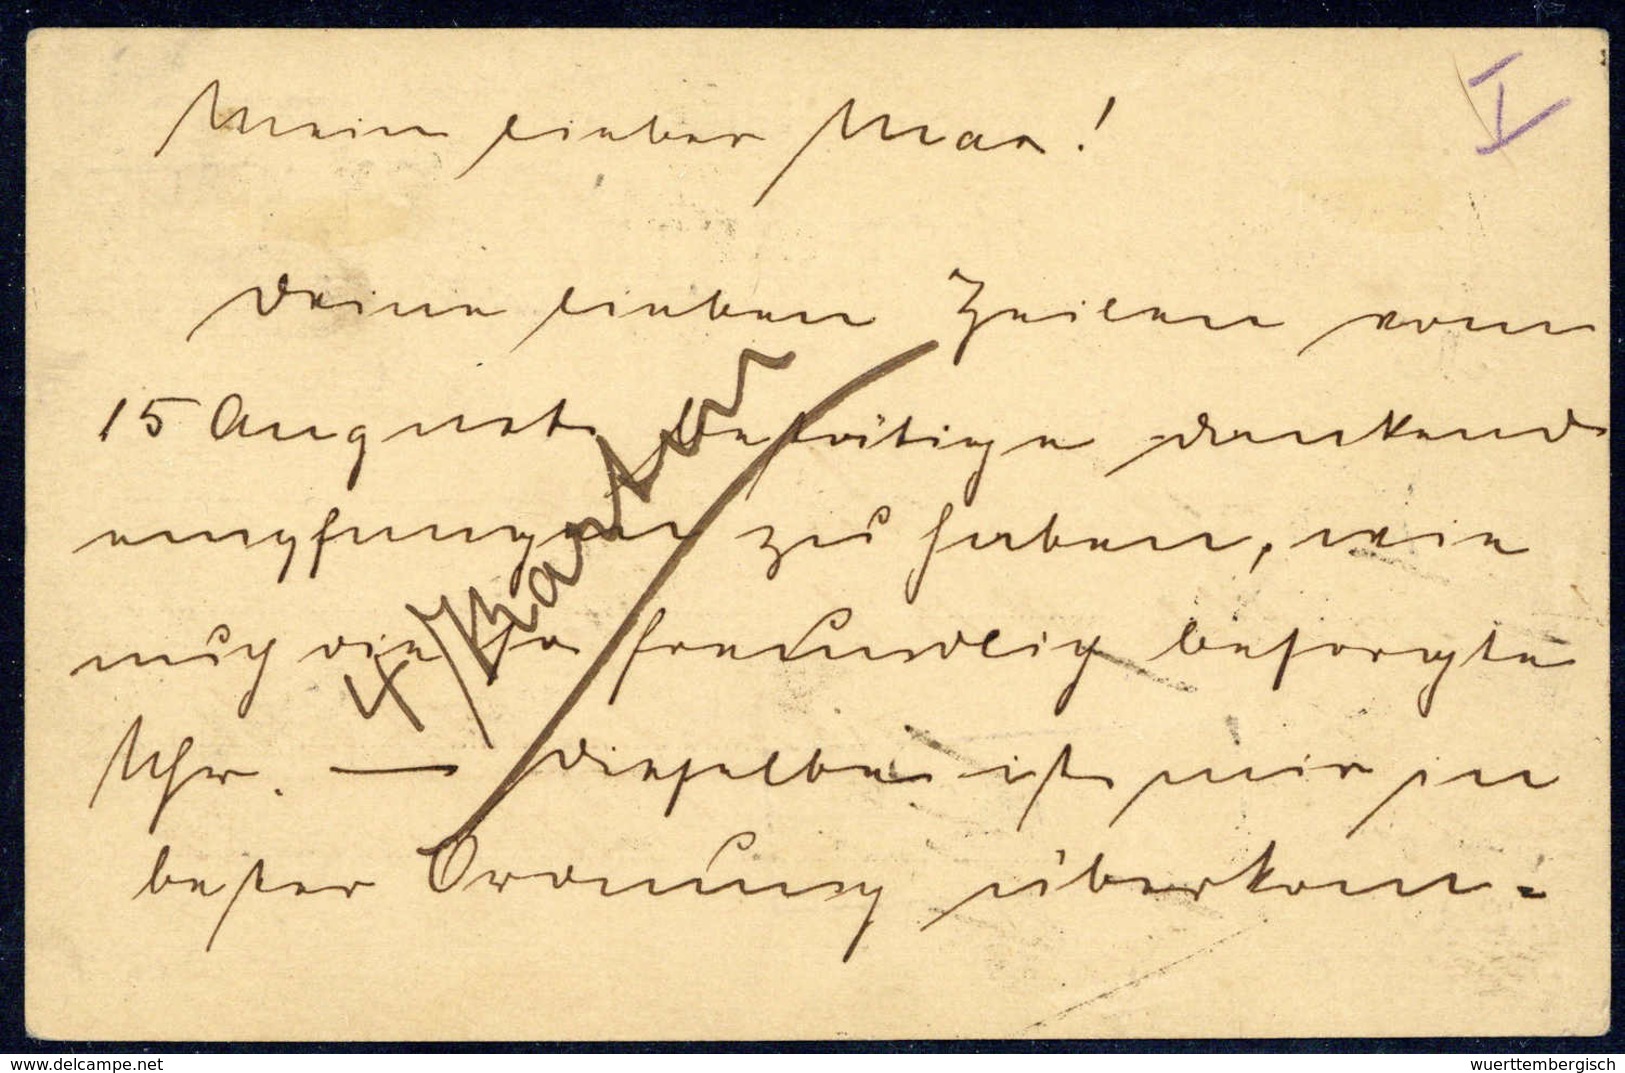 V
Mein lieber Max!
Deine lieben Zeilen vom
15 August bestätige dankend
empfangen zu haben, wie
auch die so freundlich besorgte
Uhr. — Dieselbe ist mir in
bester Ordnung überkom-
4 Marken
delcampe.net
wuerttembergisch